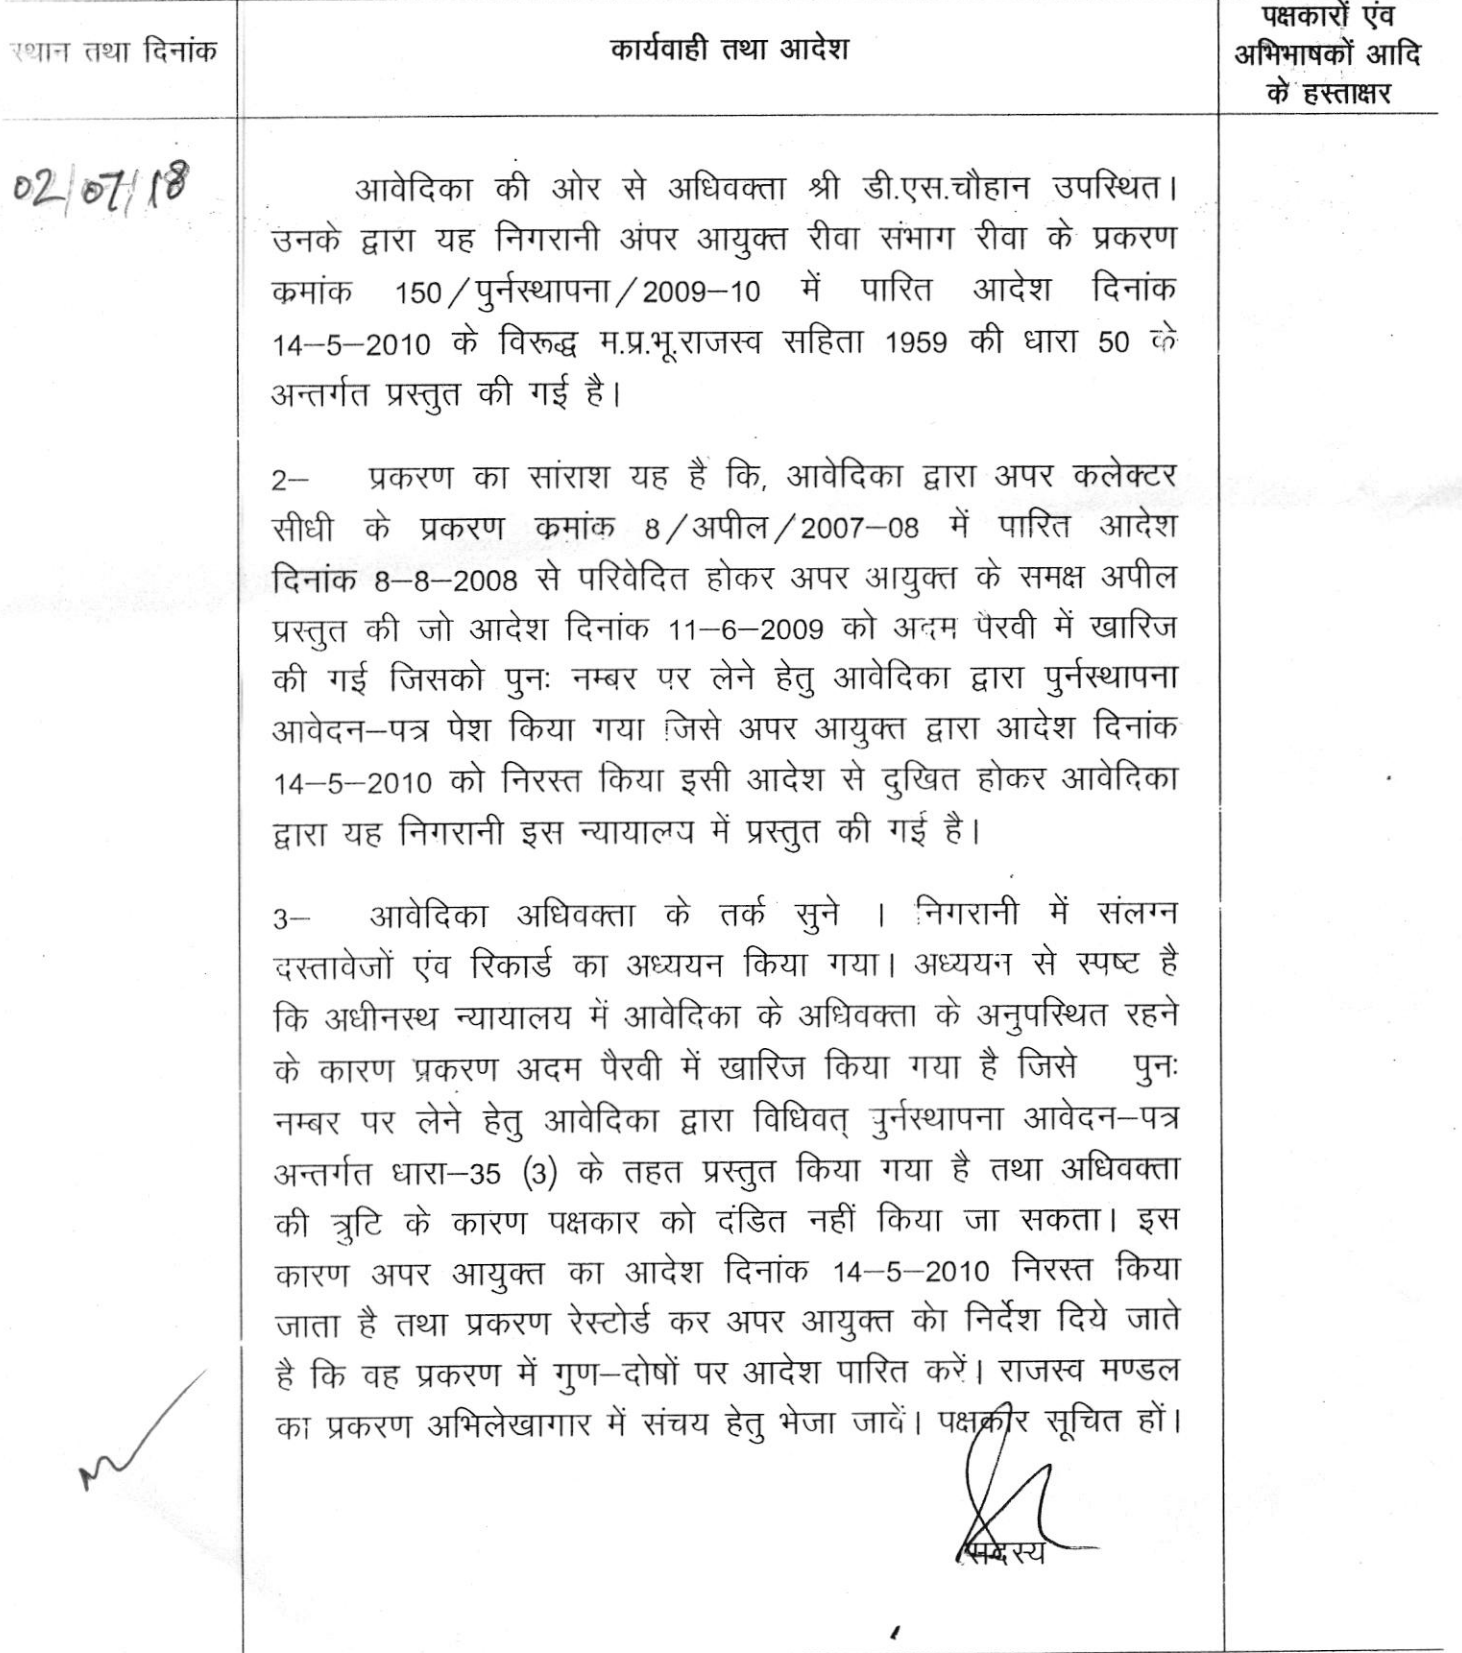 स्थान तथा दिनांक
कार्यवाही तथा आदेश
पक्षकारों एंव
अभिभाषकों आदि
के हस्ताक्षर
02/07/18
आवेदिका की ओर से अधिवक्ता श्री डी.एस.चौहान उपस्थित।
उनके द्वारा यह निगरानी अंपर आयुक्त रीवा संभाग रीवा के प्रकरण
कमांक 150/पुर्नस्थापना/2009–10 में पारित आदेश दिनांक
14–5–2010 के विरूद्ध म.प्र.भू.राजस्व सहिता 1959 की धारा 50 के
अन्तर्गत प्रस्तुत की गई है।
2– प्रकरण का सांराश यह है कि, आवेदिका द्वारा अपर कलेक्टर
सीधी के प्रकरण कमांक 8/अपील/2007–08 में पारित आदेश
दिनांक 8–8–2008 से परिवेदित होकर अपर आयुक्त के समक्ष अपील
प्रस्तुत की जो आदेश दिनांक 11–6–2009 को अदम पैरवी में खारिज
की गई जिसको पुनः नम्बर पर लेने हेतु आवेदिका द्वारा पुर्नस्थापना
आवेदन–पत्र पेश किया गया जिसे अपर आयुक्त द्वारा आदेश दिनांक
14–5–2010 को निरस्त किया इसी आदेश से दुखित होकर आवेदिका
द्वारा यह निगरानी इस न्यायालय में प्रस्तुत की गई है।
3– आवेदिका अधिवक्ता के तर्क सुने । निगरानी में संलग्न
दस्तावेजों एंव रिकार्ड का अध्ययन किया गया। अध्ययन से स्पष्ट है
कि अधीनस्थ न्यायालय में आवेदिका के अधिवक्ता के अनुपस्थित रहने
के कारण प्रकरण अदम पैरवी में खारिज किया गया है जिसे पुनः
नम्बर पर लेने हेतु आवेदिका द्वारा विधिवत् पुर्नस्थापना आवेदन–पत्र
अन्तर्गत धारा–35 (3) के तहत प्रस्तुत किया गया है तथा अधिवक्ता
की त्रुटि के कारण पक्षकार को दंडित नहीं किया जा सकता। इस
कारण अपर आयुक्त का आदेश दिनांक 14–5–2010 निरस्त किया
जाता है तथा प्रकरण रेस्टोर्ड कर अपर आयुक्त केा निर्देश दिये जाते
है कि वह प्रकरण में गुण–दोषों पर आदेश पारित करें। राजस्व मण्डल
का प्रकरण अभिलेखागार में संचय हेतु भेजा जावें। पक्षकार सूचित हों।
सदस्य